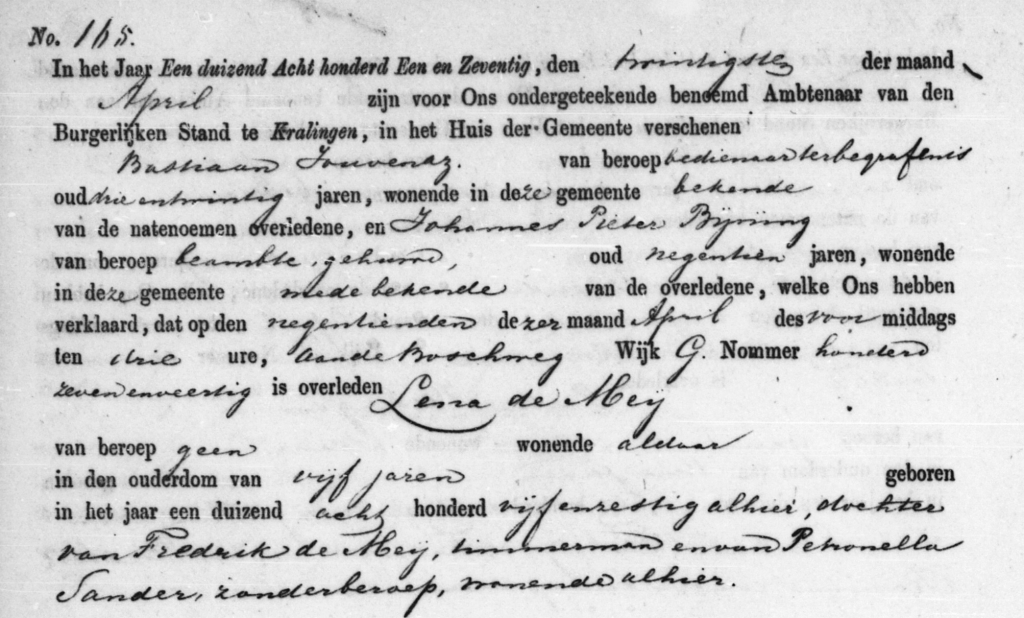 No. 165.
In het Jaar Een duizend Acht honderd Een en Zeventig, den twintigsten der maand
April zijn voor Ons ondergeteekende benoemd Ambtenaar van den
Burgerlijken Stand te Kralingen, in het Huis der Gemeente verschenen
Bastiaan Jouvenaz. van beroep bedienaar ter begrafenis
oud drie entwintig jaren, wonende in deze gemeente bekende
van de natenoemen overledene, en Johannes Pieter Bijning
van beroep beambte, gehuwd, oud negentien jaren, wonende
in deze gemeente mede bekende van de overledene, welke Ons hebben
verklaard, dat op den negentienden dezer maand April des voor middags
ten drie ure, aan de Boschweg Wijk G. Nommer honderd
zeven enveertig is overleden Lena de Meij
van beroep geen wonende aldaar
in den ouderdom van vijf jaren geboren
in het jaar een duizend acht honderd vijfenzestig alhier, dochter
van Fredrik de Meij, timmerman en van Petronella
Sander, zonder beroep, wonende alhier.